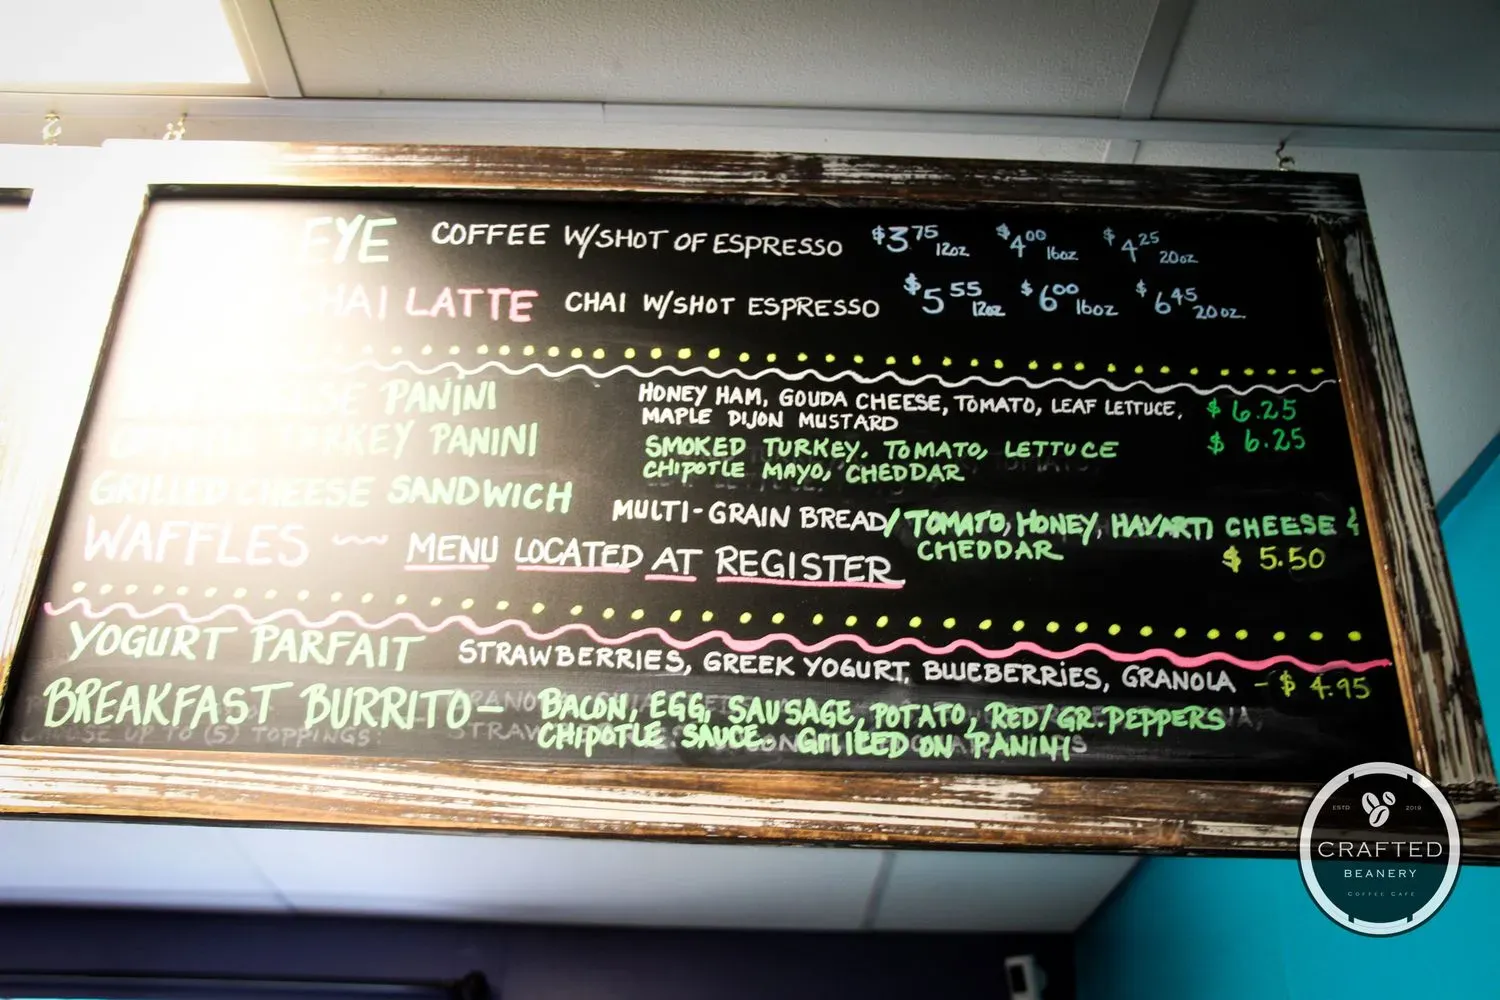 EYE COFFEE W/SHOT OF ESPRESSO $3.75 12oz $4.00 16oz $4.25 20oz
CHAI LATTE CHAI W/SHOT ESPRESSO $5.55 12oz $6.00 16oz $6.45 20oz.
PANINI HONEY HAM, GOUDA CHEESE, TOMATO, LEAF LETTUCE, $6.25
MAPLE DIJON MUSTARD
TURKEY PANINI SMOKED TURKEY. TOMATO, LETTUCE $6.25
CHIPOTLE MAYO, CHEDDAR
GRILLED CHEESE SANDWICH MULTI-GRAIN BREAD/TOMATO, HONEY, HAVARTI CHEESE &
CHEDDAR $5.50
WAFFLES ~~ MENU LOCATED AT REGISTER
YOGURT PARFAIT STRAWBERRIES, GREEK YOGURT, BLUEBERRIES, GRANOLA - $4.95
BREAKFAST BURRITO - BACON, EGG, SAUSAGE, POTATO, RED/GR. PEPPERS
CHIPOTLE SAUCE. GRILLED ON PANINI
CHOOSE UP TO (5) TOPPINGS:
ESTD 2019
CRAFTED
BEANERY
COFFEE CAFE